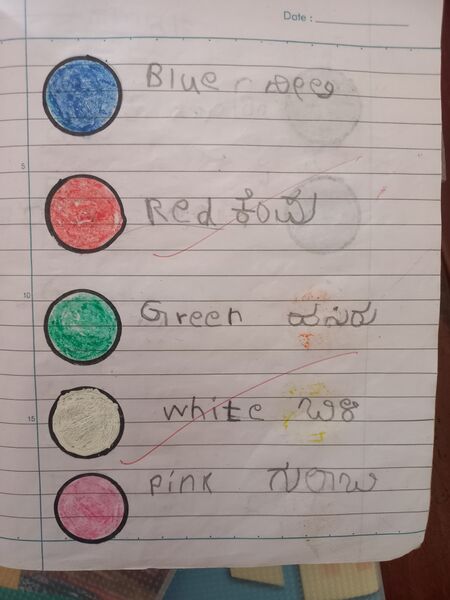 Date :
Blue - ನೀಲಿ
5
Red ಕೆಂಪು
10
Green ಹಸಿರು
15
white ಬಿಳಿ
pink ಗುಲಾಬಿ